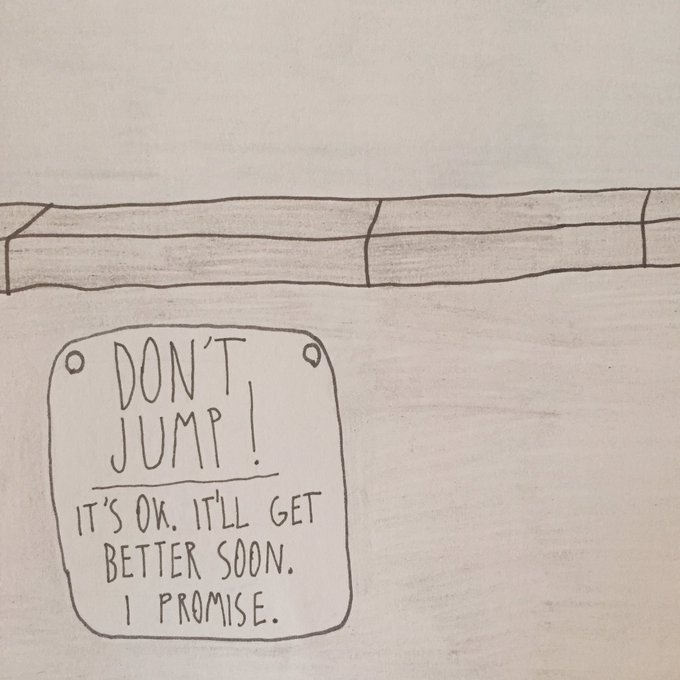 DON'T
JUMP!
IT'S OK. IT'LL GET
BETTER SOON.
I PROMISE.